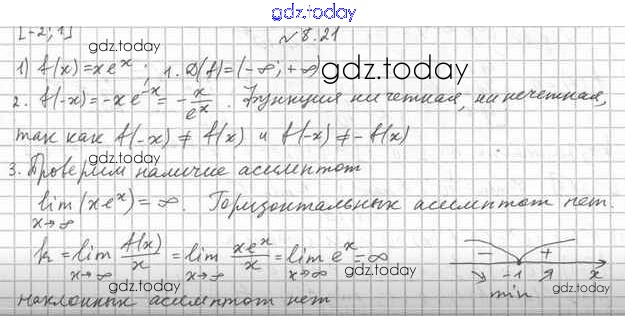 gdz.today
[-2; 1]
gdz.today
№ 8.21
1) f(x)=xeˣ; 1. D(f)=(-∞; +∞)
gdz.today
2. f(-x)=-xe⁻ˣ = -x/eˣ. Функция ни четная, ни нечетная,
так как f(-x) ≠ f(x) и f(-x) ≠ -f(x)
gdz.today
3. Проверим наличие асимптот
gdz.today
lim x→∞ (xeˣ) = ∞. Горизонтальных асимптот нет.
gdz.today
k = lim x→∞ f(x)/x = lim x→∞ xeˣ/x = lim x→∞ eˣ = ∞
− + 
-1 x
min
gdz.today
наклонных асимптот нет
gdz.today
gdz.today